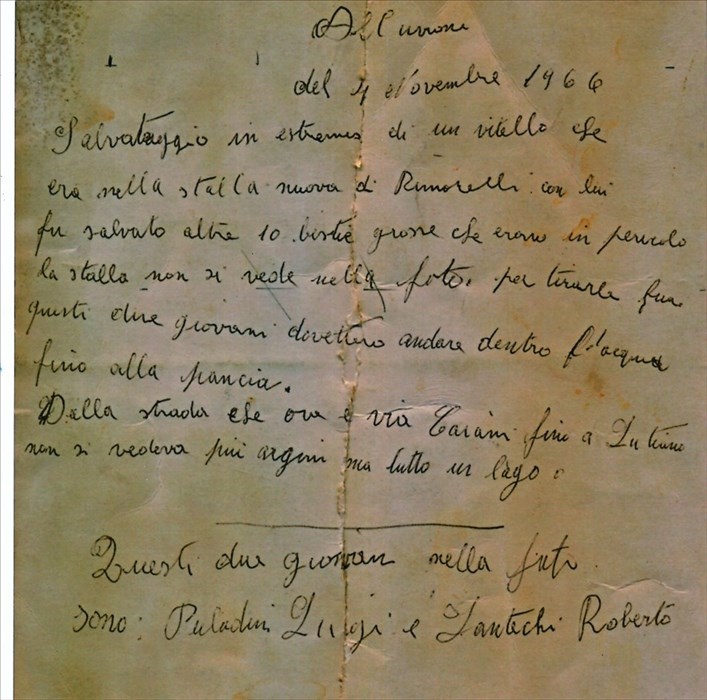 Alluvione
del 4 Novembre 1966
Salvataggio in estremis di un vitello che
era nella stalla nuova di Rimorelli con lui
fu salvato altre 10 bestie grosse che erano in pericolo
la stalla non si vede nella foto. per tirarle fuori
questi due giovani dovettero andare dentro l'acqua
fino alla pancia.
Dalla strada che ora è via fino a
non si vedeva più argini ma tutto un lago.
Questi due giovani nella foto
sono: Paladini Luigi e Roberto